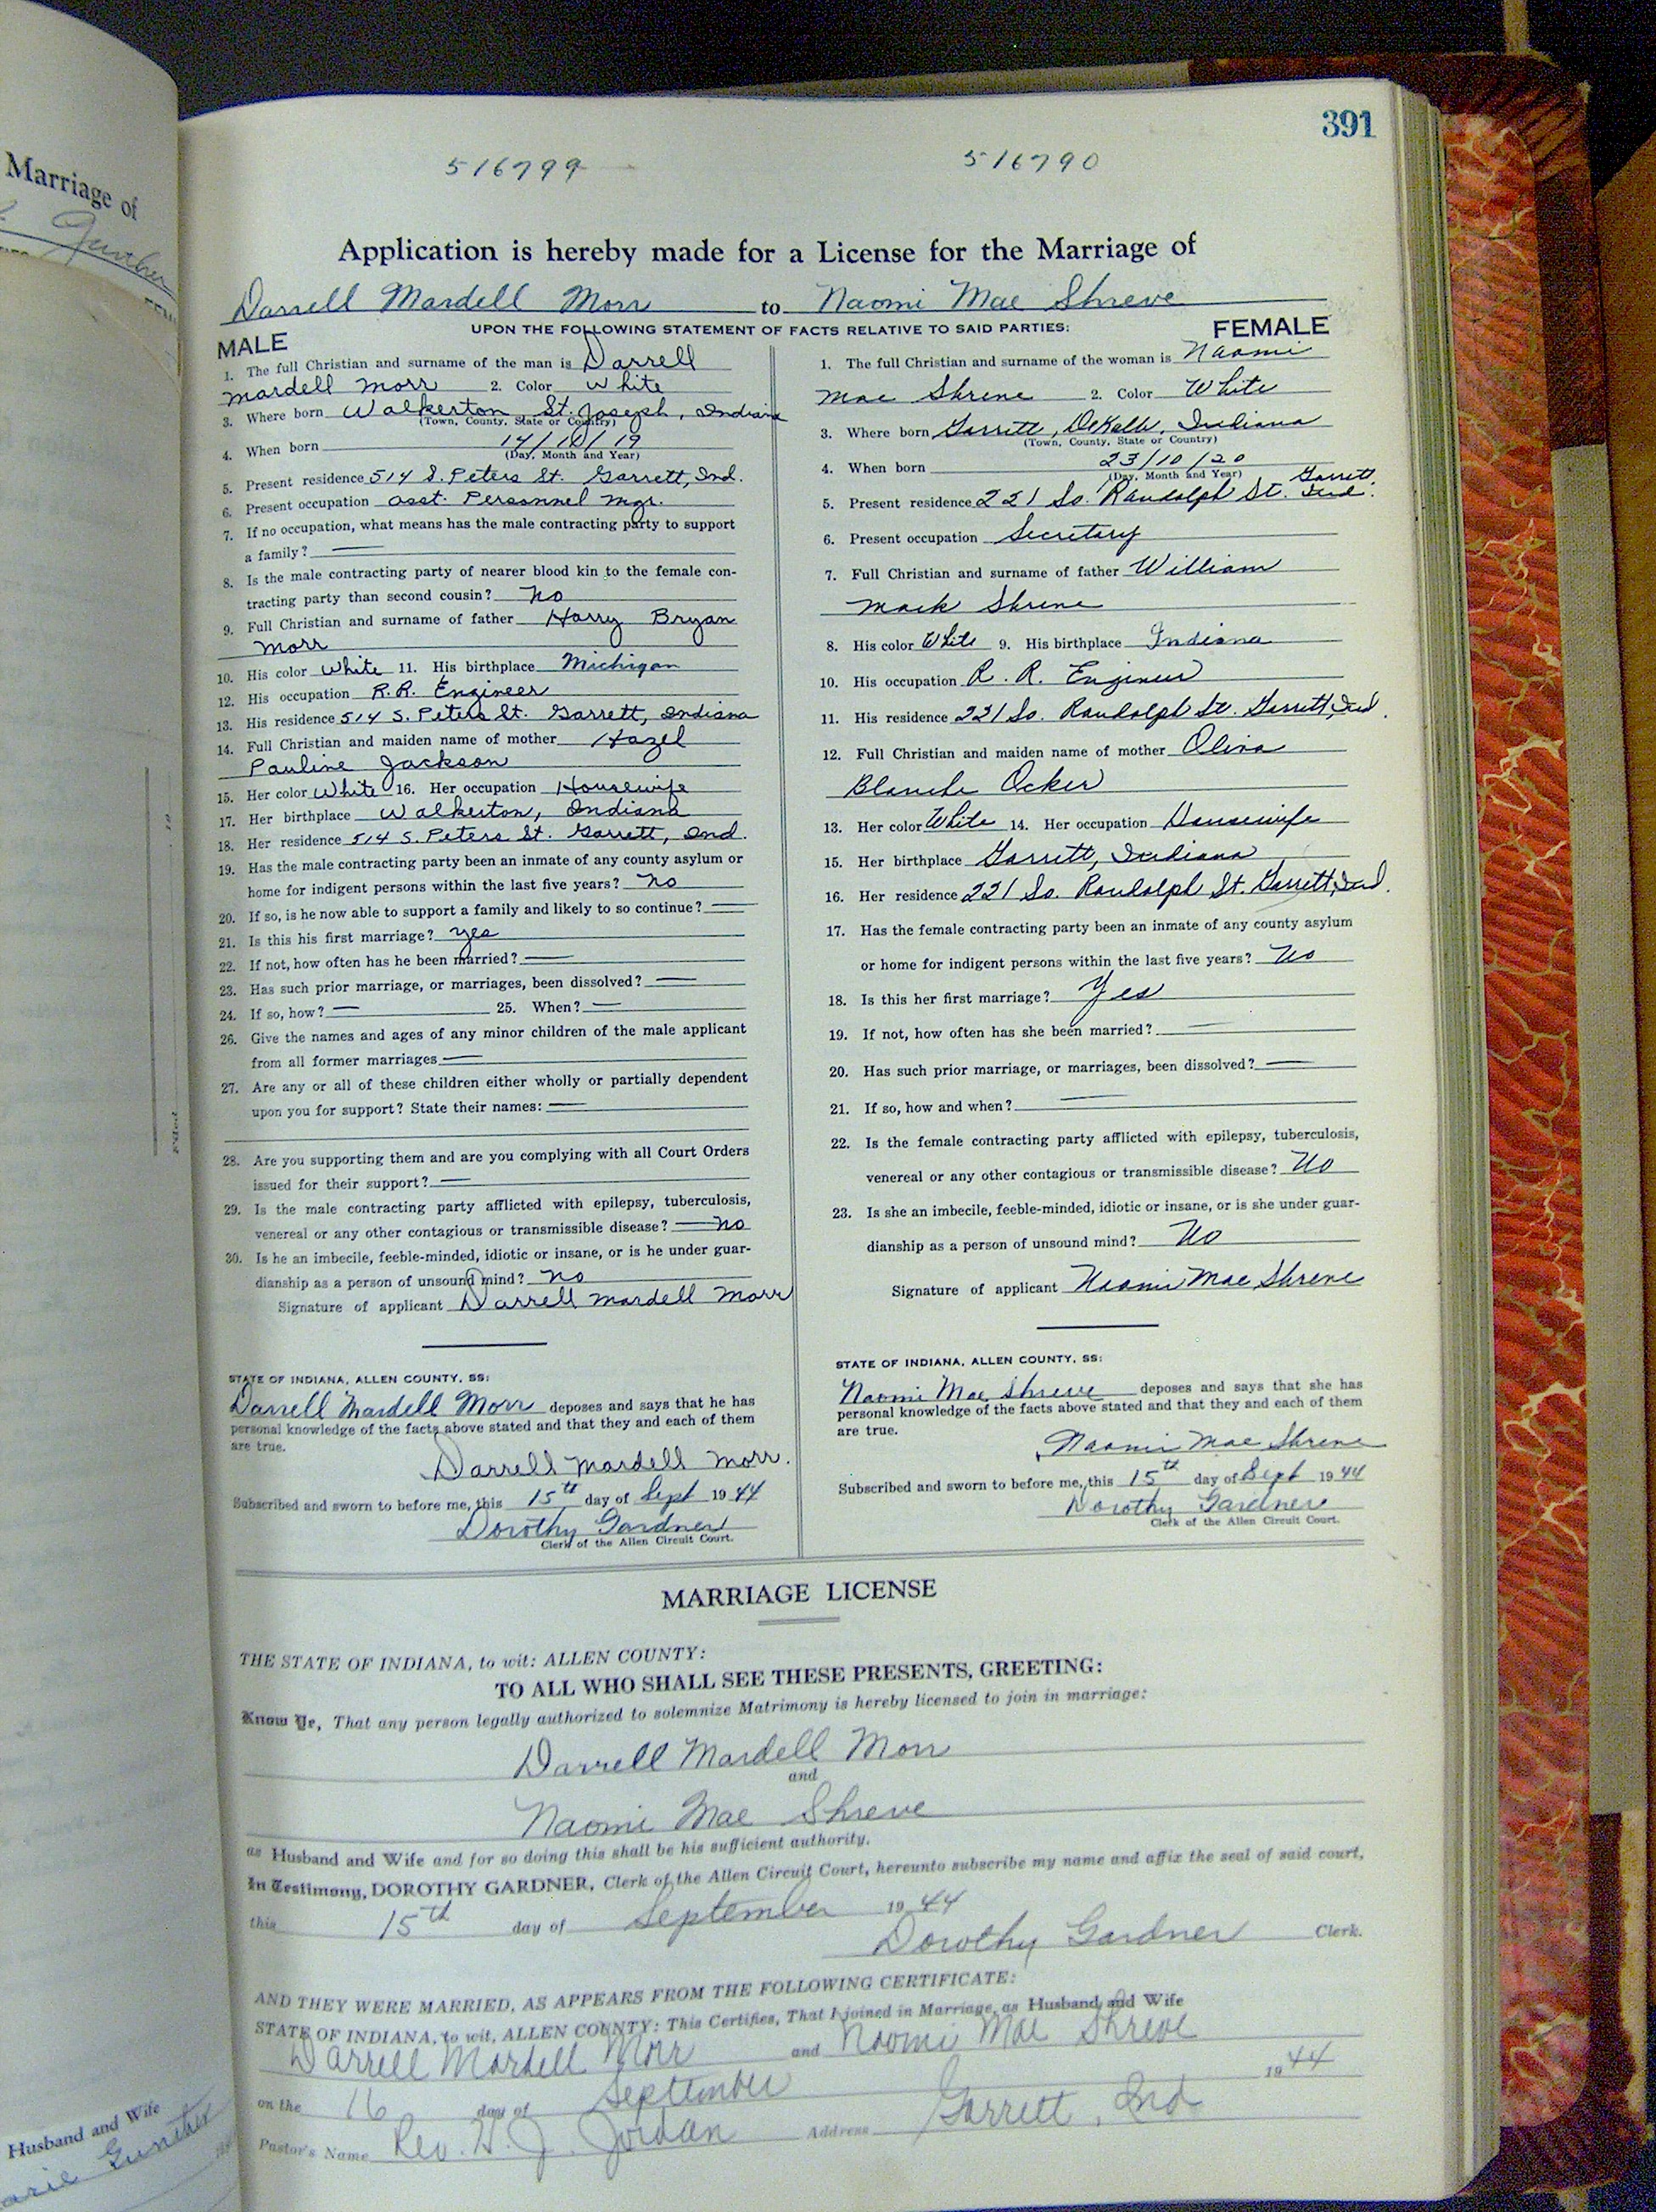 Marriage of
Gunther
391
516799
516790
Application is hereby made for a License for the Marriage of
Darrell Mardell Morr to Naomi Mae Shreve
UPON THE FOLLOWING STATEMENT OF FACTS RELATIVE TO SAID PARTIES:
MALE
1. The full Christian and surname of the man is Darrell
Mardell Morr 2. Color White
3. Where born Walkerton, St. Joseph, Indiana
(Town, County, State or Country)
4. When born 14/10/19
(Day, Month and Year)
5. Present residence 514 S. Peters St. Garrett, Ind.
6. Present occupation asst. Personnel Mgr.
7. If no occupation, what means has the male contracting party to support
a family? —
8. Is the male contracting party of nearer blood kin to the female con-
tracting party than second cousin? No
9. Full Christian and surname of father Harry Bryan
Morr
10. His color White 11. His birthplace Michigan
12. His occupation R.R. Engineer
13. His residence 514 S. Peters St. Garrett, Indiana
14. Full Christian and maiden name of mother Hazel
Pauline Jackson
15. Her color White 16. Her occupation Housewife
17. Her birthplace Walkerton, Indiana
18. Her residence 514 S. Peters St. Garrett, Ind.
19. Has the male contracting party been an inmate of any county asylum or
home for indigent persons within the last five years? No
20. If so, is he now able to support a family and likely to so continue? —
21. Is this his first marriage? Yes
22. If not, how often has he been married? —
23. Has such prior marriage, or marriages, been dissolved? —
24. If so, how? — 25. When? —
26. Give the names and ages of any minor children of the male applicant
from all former marriages —
27. Are any or all of these children either wholly or partially dependent
upon you for support? State their names: —
28. Are you supporting them and are you complying with all Court Orders
issued for their support? —
29. Is the male contracting party afflicted with epilepsy, tuberculosis,
venereal or any other contagious or transmissible disease? — No
30. Is he an imbecile, feeble-minded, idiotic or insane, or is he under guar-
dianship as a person of unsound mind? No
Signature of applicant Darrell Mardell Morr
STATE OF INDIANA, ALLEN COUNTY, SS:
Darrell Mardell Morr deposes and says that he has
personal knowledge of the facts above stated and that they and each of them
are true.
Darrell Mardell Morr.
Subscribed and sworn to before me, this 15th day of Sept 1944
Dorothy Gardner
Clerk of the Allen Circuit Court.
FEMALE
1. The full Christian and surname of the woman is Naomi
Mae Shreve 2. Color White
3. Where born Garrett, DeKalb, Indiana
(Town, County, State or Country)
4. When born 23/10/20
(Day, Month and Year)
5. Present residence 221 So. Randolph St. Garrett, Ind.
6. Present occupation Secretary
7. Full Christian and surname of father William
Mack Shreve
8. His color White 9. His birthplace Indiana
10. His occupation R. R. Engineer
11. His residence 221 So. Randolph St. Garrett, Ind.
12. Full Christian and maiden name of mother Oliva
Blanche Ocker
13. Her color White 14. Her occupation Housewife
15. Her birthplace Garrett, Indiana
16. Her residence 221 So. Randolph St. Garrett, Ind.
17. Has the female contracting party been an inmate of any county asylum
or home for indigent persons within the last five years? No
18. Is this her first marriage? Yes
19. If not, how often has she been married? —
20. Has such prior marriage, or marriages, been dissolved? —
21. If so, how and when? —
22. Is the female contracting party afflicted with epilepsy, tuberculosis,
venereal or any other contagious or transmissible disease? No
23. Is she an imbecile, feeble-minded, idiotic or insane, or is she under guar-
dianship as a person of unsound mind? No
Signature of applicant Naomi Mae Shreve
STATE OF INDIANA, ALLEN COUNTY, SS:
Naomi Mae Shreve deposes and says that she has
personal knowledge of the facts above stated and that they and each of them
are true.
Naomi Mae Shreve
Subscribed and sworn to before me, this 15th day of Sept 1944
Dorothy Gardner
Clerk of the Allen Circuit Court.
MARRIAGE LICENSE
THE STATE OF INDIANA, to wit: ALLEN COUNTY:
TO ALL WHO SHALL SEE THESE PRESENTS, GREETING:
Know Ye, That any person legally authorized to solemnize Matrimony is hereby licensed to join in marriage:
Darrell Mardell Morr
and
Naomi Mae Shreve
as Husband and Wife and for so doing this shall be his sufficient authority.
In Testimony, DOROTHY GARDNER, Clerk of the Allen Circuit Court, hereunto subscribe my name and affix the seal of said court,
this 15th day of September 1944
Dorothy Gardner Clerk.
AND THEY WERE MARRIED, AS APPEARS FROM THE FOLLOWING CERTIFICATE:
STATE OF INDIANA, to wit, ALLEN COUNTY: This Certifies, That I joined in Marriage, as Husband and Wife
Darrell Mardell Morr and Naomi Mae Shreve
on the 16 day of September 1944
Pastor's Name Rev. H. J. Jordan Address Garrett, Ind
Husband and Wife
arie Gunther